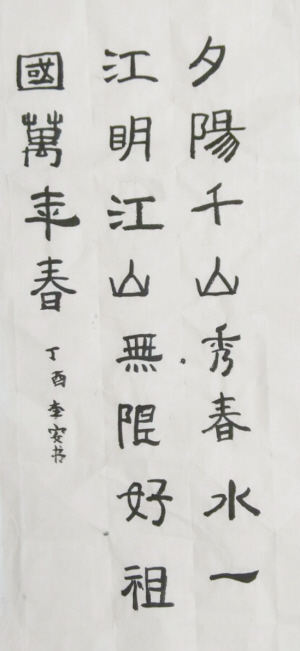 夕陽千山秀春水一
江明江山無限好祖
國萬年春
丁酉李安书